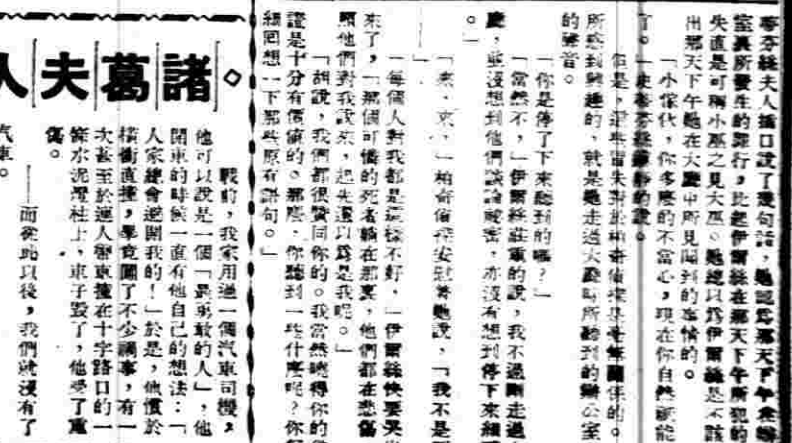 蒂芬絲夫人插口說了幾句話，她認為那天下午在辦
室裏所發生的罪行，比起伊爾絲在那天下午所犯的
失直是可稱小巫之見大巫。她總以為伊爾絲是不該
出那天下午她在大廳中所見聞到的事情的。
「小傢伙，你多麼的不當心，現在你自然祇能
了。」史蒂芬絲嚴靜的說。
但是，這些當失對於柏奇偵探是毫無關係的。
所感到興趣的，就是她走過大廳時所聽到的辦公室
的聲音。
「你是停了下來聽到的嗎？」
「當然不，」伊爾絲莊重的說，我不過剛走過
廳，並沒想到他們談論祕密，亦沒有想到停下來細
。」
「來，來，」柏奇偵探安慰著她說，「我不是
「每個人對我都是這樣不好，」伊爾絲快要哭
來了，「那個可憐的死者躺在那裏，他們都在悲傷
照他們對我說來，起先還以為是我呢。」
「胡說，我們都很贊同你的。我當然曉得你的
證是十分有價值的。那麼，你聽到一些什麼呢？你
細回想一下那些原有語句。」
諸葛夫人
戰前，我家用過一個汽車司機，
他可以說是一個「最勇敢的人」，他
開車的時候一直有他自己的想法：「
人家總會避開我的！」於是，他慣於
橫衝直撞，畢竟闖了不少禍事，有一
次甚至於連人帶車撞在十字路口的一
條水泥燈柱上，車子毀了，他受了重
傷。
——而從此以後，我們就沒有了
汽車。